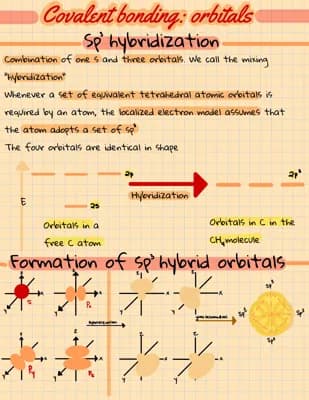 Covalent bonding: orbitals
Sp³ hybridization
Combination of one s and three orbitals. We call the mixing
"hybridization"
Whenever a set of equivalent tetrahedral atomic orbitals is
required by an atom, the localized electron model assumes that
the atom adopts a set of sp³
The four orbitals are identical in shape
2p
2p³
Hybridization
E
2s
Orbitals in a
free C atom
Orbitals in C in the
CH₄ molecule
Formation of Sp³ hybrid orbitals
z
z
z
z
x
x
x
x
y
y
y
y
s
Sp³
Sp³
Sp³
Sp³
hybridization